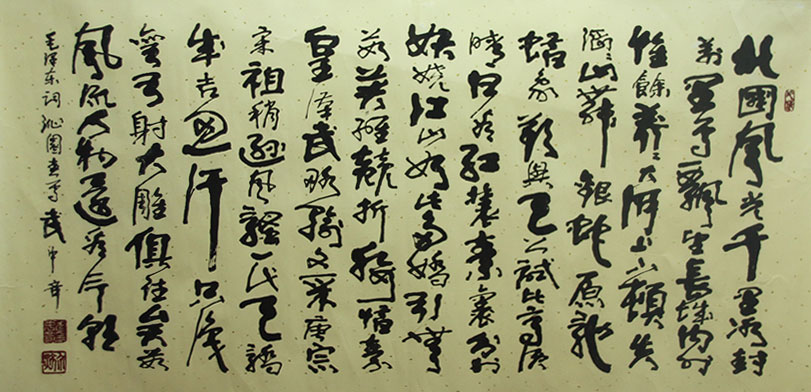 北國風光千里冰封
万里雪飄望長城內外
惟餘莽莽大河上下頓失
滔滔山舞銀蛇原馳
蠟象欲與天公試比高須
晴日看紅裝素裹分外
妖嬈江山如此多嬌引無
數英雄競折腰惜秦
皇漢武略輸文采唐宗
宋祖稍遜風騷一代天驕
成吉思汗只識
彎弓射大雕俱往矣數
風流人物還看今朝
毛澤东词沁園春雪武中